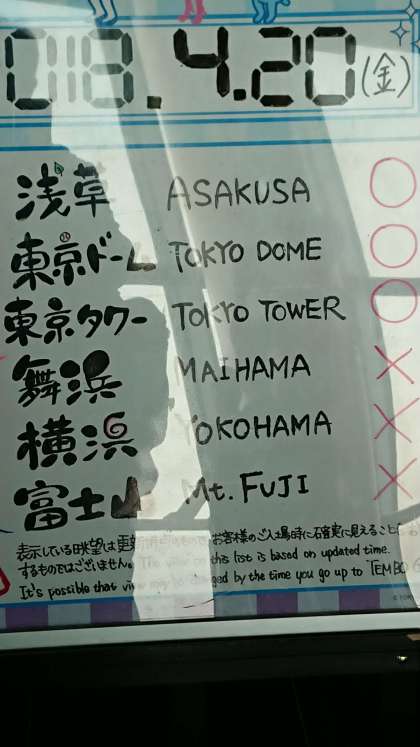 08.4.20(金)
浅草 ASAKUSA ○
東京ドーム TOKYO DOME ○
東京タワー TOKYO TOWER ○
舞浜 MAIHAMA ×
横浜 YOKOHAMA ×
富士山 Mt. FUJI ×
表示している眺望は更新時点のもので、お客様のご入場時に確実に見えること
するものではございません。The view on this list is based on updated time.
It's possible that view may be changed by the time you go up to "TEMBO